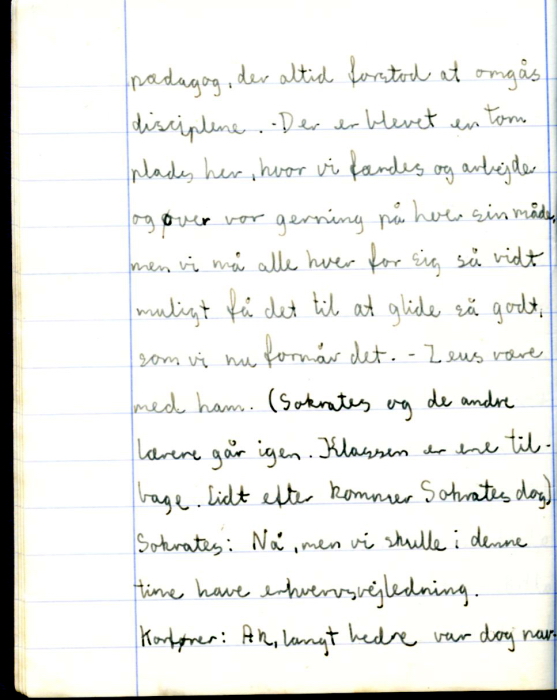 pædagog, der altid forstod at omgås
disciplene. - Der er blevet en tom
plads her, hvor vi færdes og arbejder
og øver vor gerning på hver sin måde,
men vi må alle hver for sig så vidt
muligt få det til at glide så godt,
som vi nu formår det. - Zeus være
med ham. (Sokrates og de andre
lærere går igen. Klassen er ene til-
bage. Lidt efter kommer Sokrates dog)
Sokrates: Nå, men vi skulle i denne
time have erhvervsvejledning.
Ak, langt bedre var dog nar-